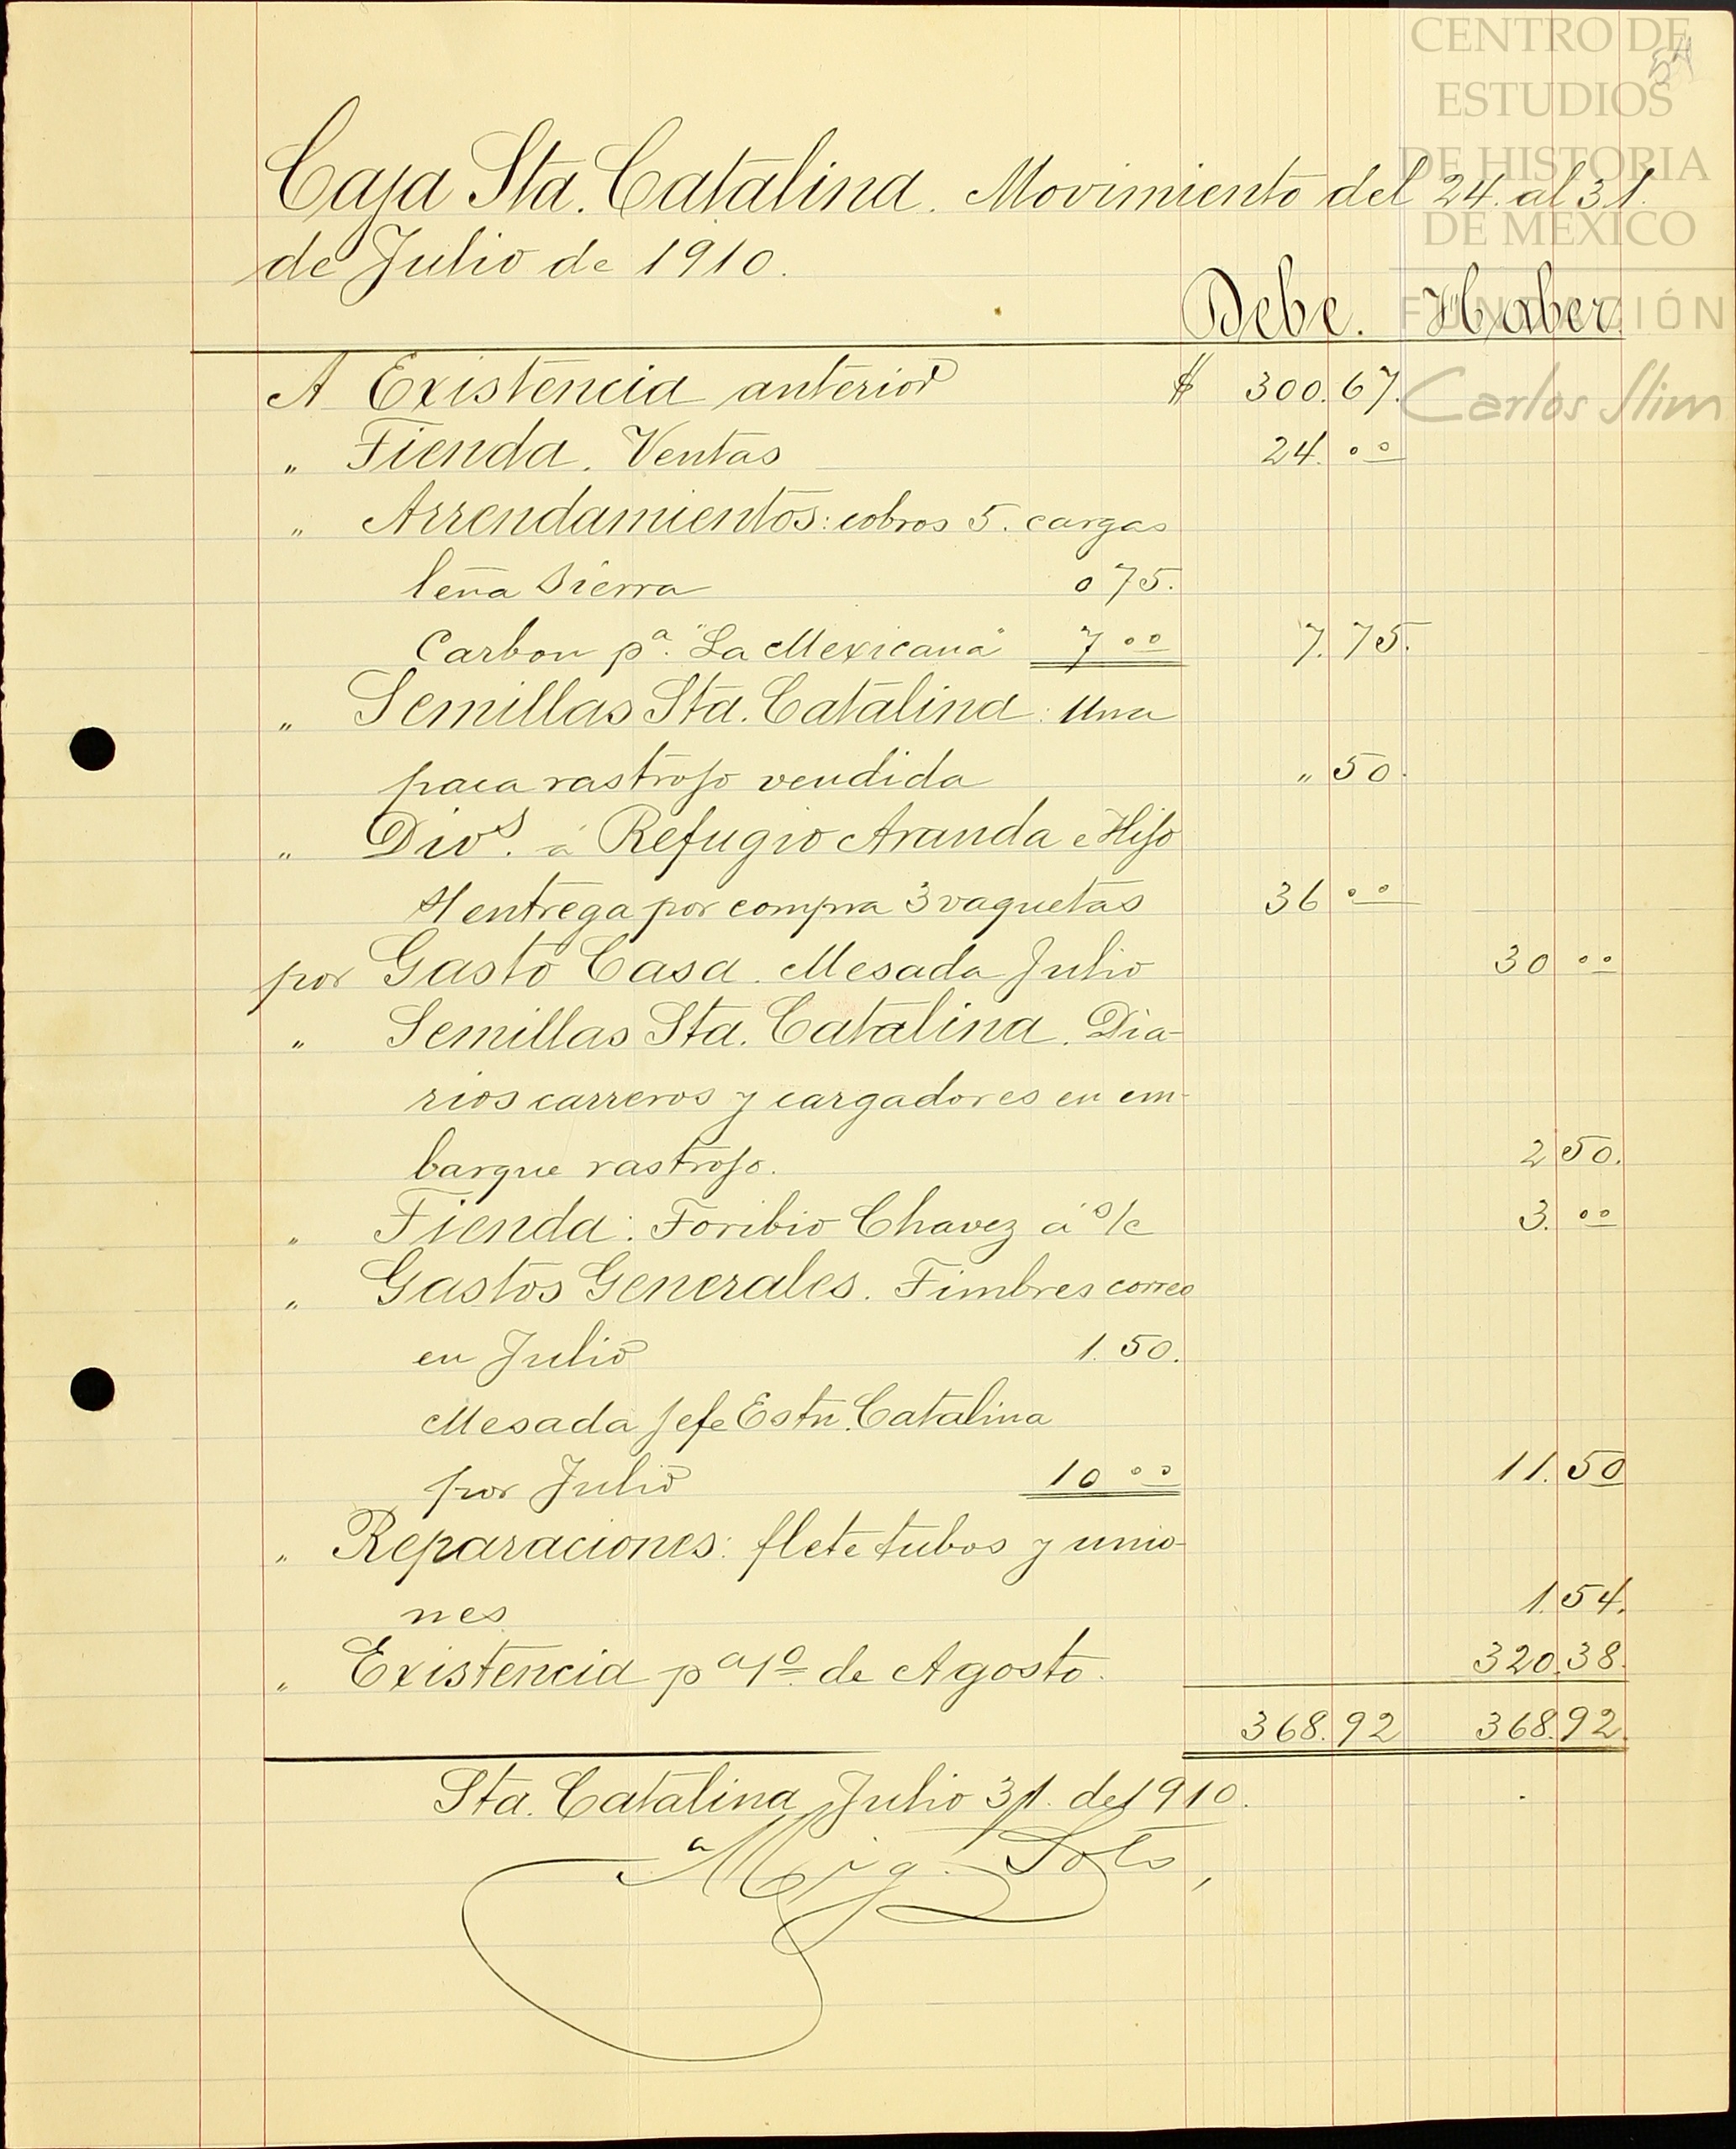 CENTRO DE
ESTUDIOS
DE HISTORIA
DE MEXICO
FUNDACIÓN
Carlos Slim
54
Caja Sta. Catalina. Movimiento del 24. al 31.
de Julio de 1910.
Debe. Haber
A Existencia anterior $ 300.67.
" Tienda. Ventas 24.00
" Arrendamientos: cobros 5. cargas
leña Sierra 0 75.
Carbon pa. "La Mexicana" 7 00 7.75.
" Semillas Sta. Catalina: Una
paca rastrojo vendida " 50.
" Divs. á Refugio Aranda e Hijo
entrega por compra 3 vaquetas 36 00
por Gasto Casa. Mesada Julio 30 00
" Semillas Sta. Catalina. Dia-
rios carreros y cargadores en em-
barque rastrojo. 2 50.
" Tienda: Toribio Chavez á o/c 3.00
" Gastos Generales. Timbres correo
en Julio 1.50.
Mesada Jefe Estn. Catalina
por Julio 10 00 11.50
" Reparaciones: flete tubos y unio-
nes 1.54.
" Existencia pa 1o de Agosto. 320.38.
368.92 368.92.
Sta. Catalina Julio 31. de 1910.
Mig. Soto,